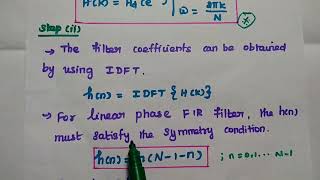 H(k) = Hd(e
ω = 2πk
N
Step (ii)
→ The filter coefficients can be obtained
by using IDFT.
h(n) = IDFT {H(k)}
→ For linear phase FIR filter, the h(n)
must satisfy the symmetry condition.
h(n) = h(N-1-n) ; n=0,1,... N-1